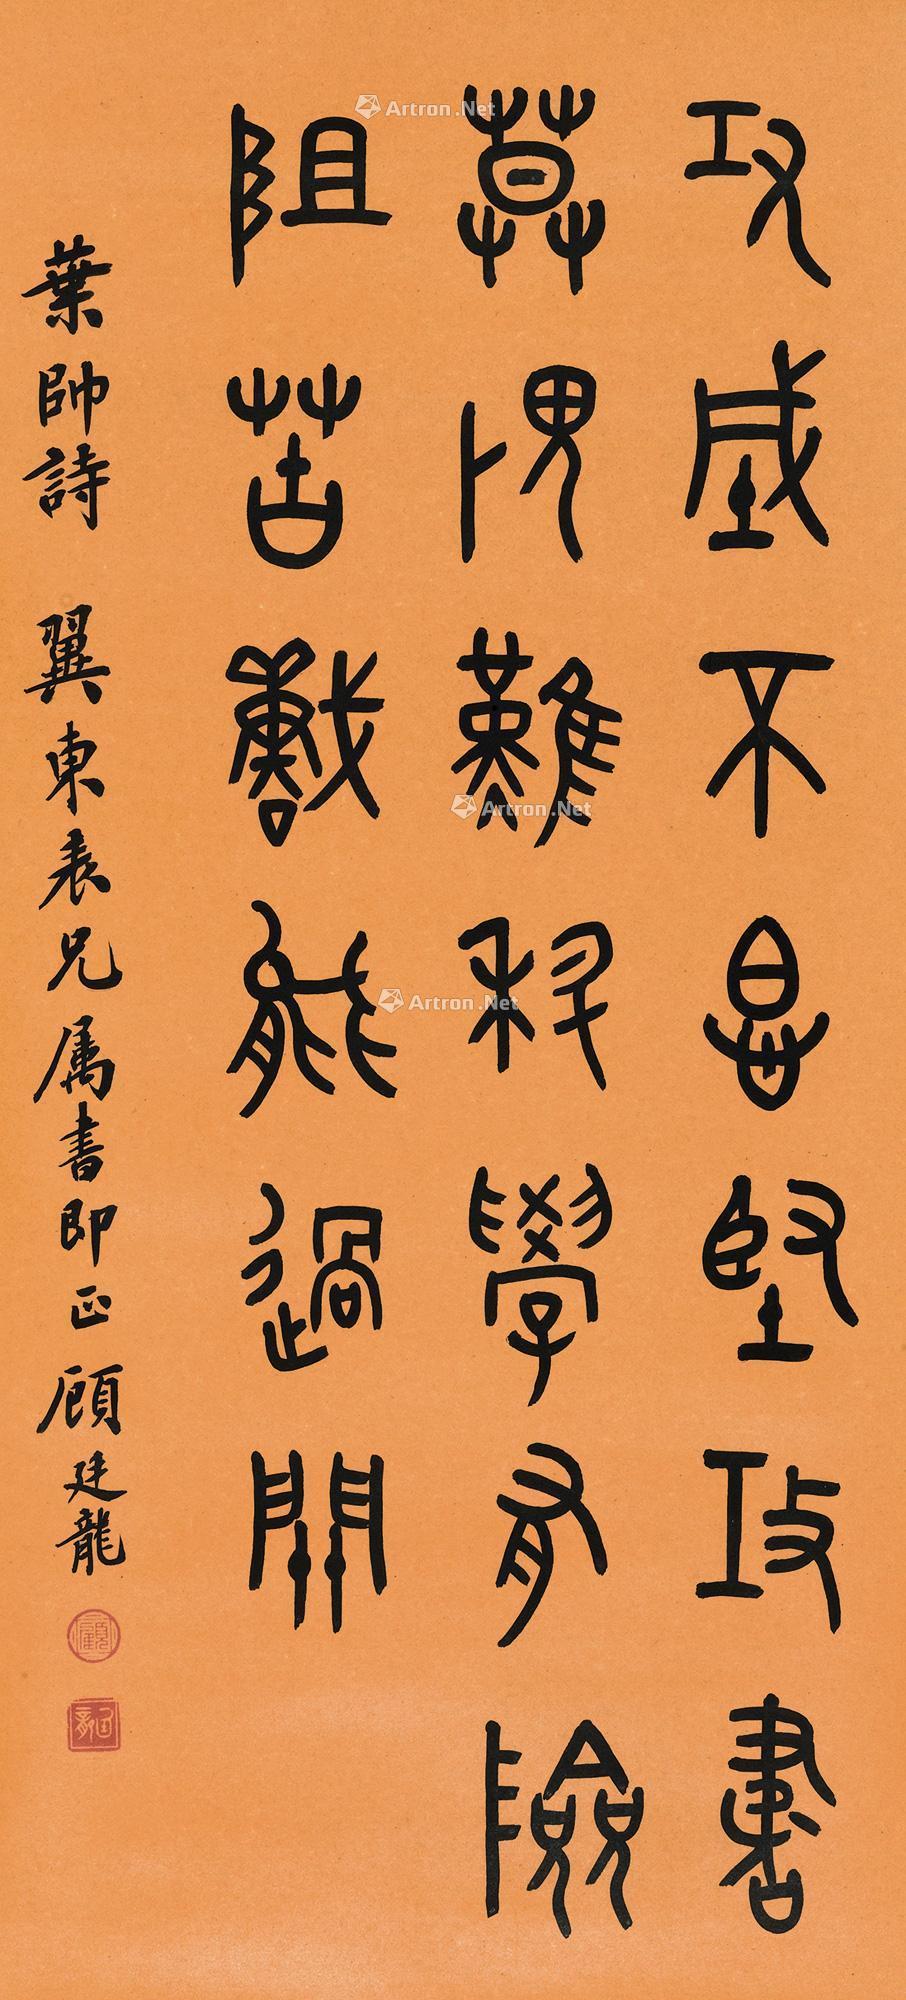 攻城不怕堅攻書
莫畏難科學有險
阻苦戰能過關
葉帥詩 翼東表兄属書即正 顧廷龍
顧
Artron.Net
Artron.Net
Artron.Net